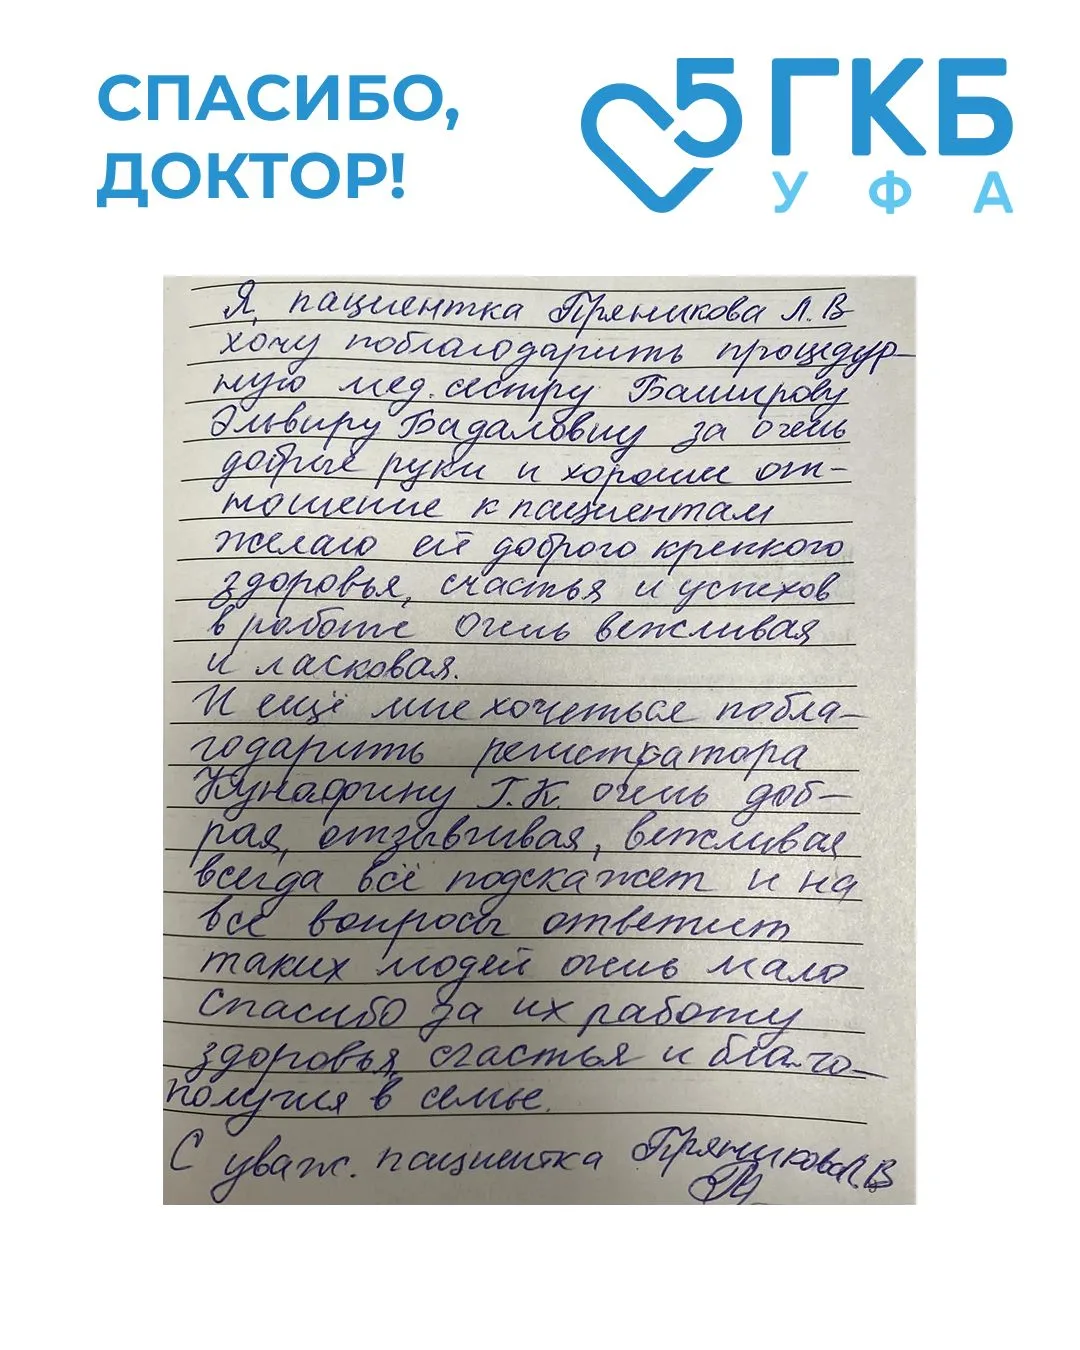 СПАСИБО,
ДОКТОР!
5 ГКБ
УФА
Я, пациентка Пряникова Л.В
хочу поблагодарить процедур-
ную мед. сестру Баширову
Эльвиру Бадаловну за очень
добрые руки и хорошие от-
ношение к пациентам
желаю ей доброго крепкого
здоровья, счастья и успехов
в работе очень вежливая
и ласковая.
И ещё мне хочеться побла-
годарить регистратора
Кунафину Г.К. очень доб-
рая, отзывчивая, вежливая
всегда всё подскажет и на
все вопросы ответит
таких людей очень мало
Спасибо за их работу
здоровья, счастья и благо-
получия в семье.
С уваж. пациентка Пряникова Л.В